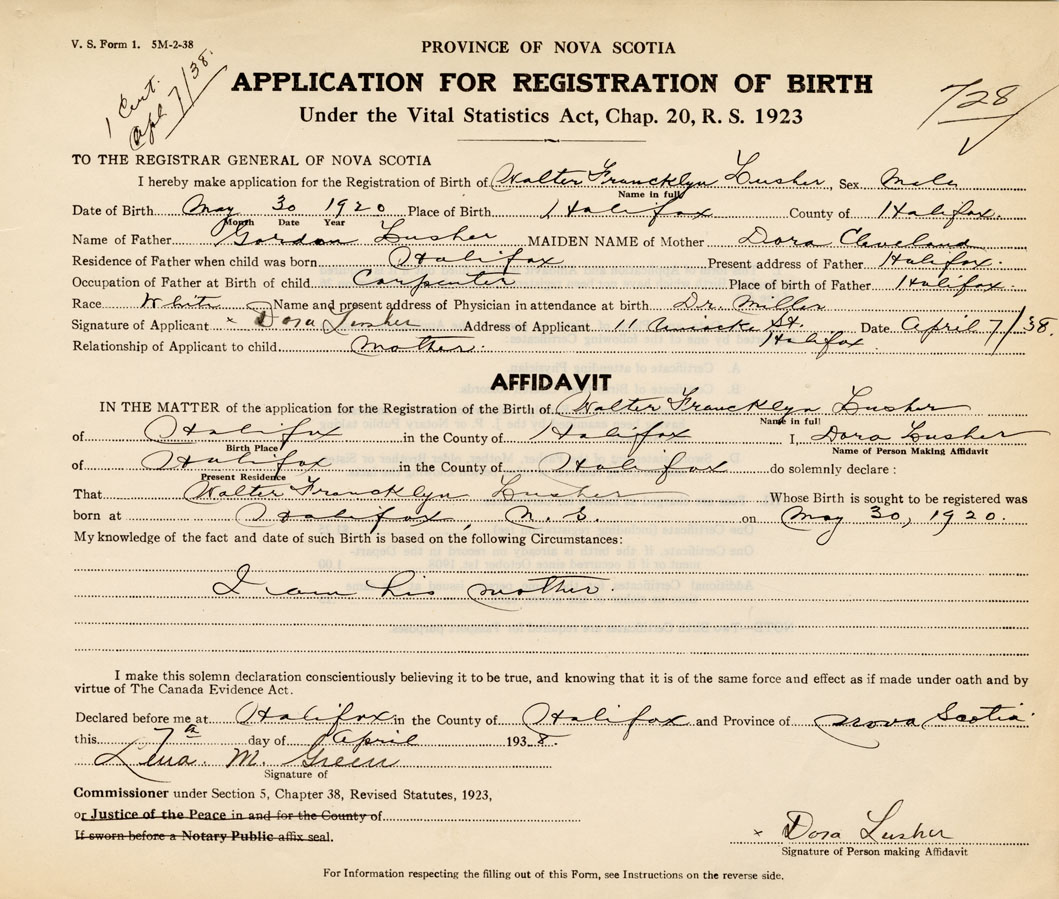 V. S. Form 1. 5M-2-38
1 Cert.
Apl 7/38.
PROVINCE OF NOVA SCOTIA
APPLICATION FOR REGISTRATION OF BIRTH
728
Under the Vital Statistics Act, Chap. 20, R. S. 1923
TO THE REGISTRAR GENERAL OF NOVA SCOTIA
I hereby make application for the Registration of Birth of Walter Francklyn Lusher, Sex Male
Name in full
Date of Birth May 30 1920 Place of Birth Halifax County of Halifax.
Month Date Year
Name of Father Gordon Lusher MAIDEN NAME of Mother Dora Cleveland
Residence of Father when child was born Halifax Present address of Father Halifax.
Occupation of Father at Birth of child Carpenter Place of birth of Father Halifax.
Race White Name and present address of Physician in attendance at birth Dr. Miller
Signature of Applicant x Dora Lusher Address of Applicant 11 Uniacke St. Date April 7/38.
Relationship of Applicant to child Mother. Halifax
AFFIDAVIT
IN THE MATTER of the application for the Registration of the Birth of Walter Francklyn Lusher
Name in full
of Halifax in the County of Halifax I, Dora Lusher
Birth Place Name of Person Making Affidavit
of Halifax in the County of Halifax do solemnly declare :
Present Residence
That Walter Francklyn Lusher Whose Birth is sought to be registered was
born at Halifax, N. S. on May 30, 1920.
My knowledge of the fact and date of such Birth is based on the following Circumstances:
I am his mother.
I make this solemn declaration conscientiously believing it to be true, and knowing that it is of the same force and effect as if made under oath and by
virtue of The Canada Evidence Act.
Declared before me at Halifax in the County of Halifax and Province of Nova Scotia
this 7th day of April 1938.
Lena. M. Green
Signature of
Commissioner under Section 5, Chapter 38, Revised Statutes, 1923,
or Justice of the Peace in and for the County of
If sworn before a Notary Public affix seal.
x Dora Lusher
Signature of Person making Affidavit
For Information respecting the filling out of this Form, see Instructions on the reverse side.